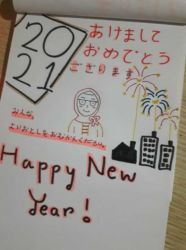 20
21
あけまして
おめでとう
ございます
みんな、
よいおとしをおむかえください
Happy New
Year!